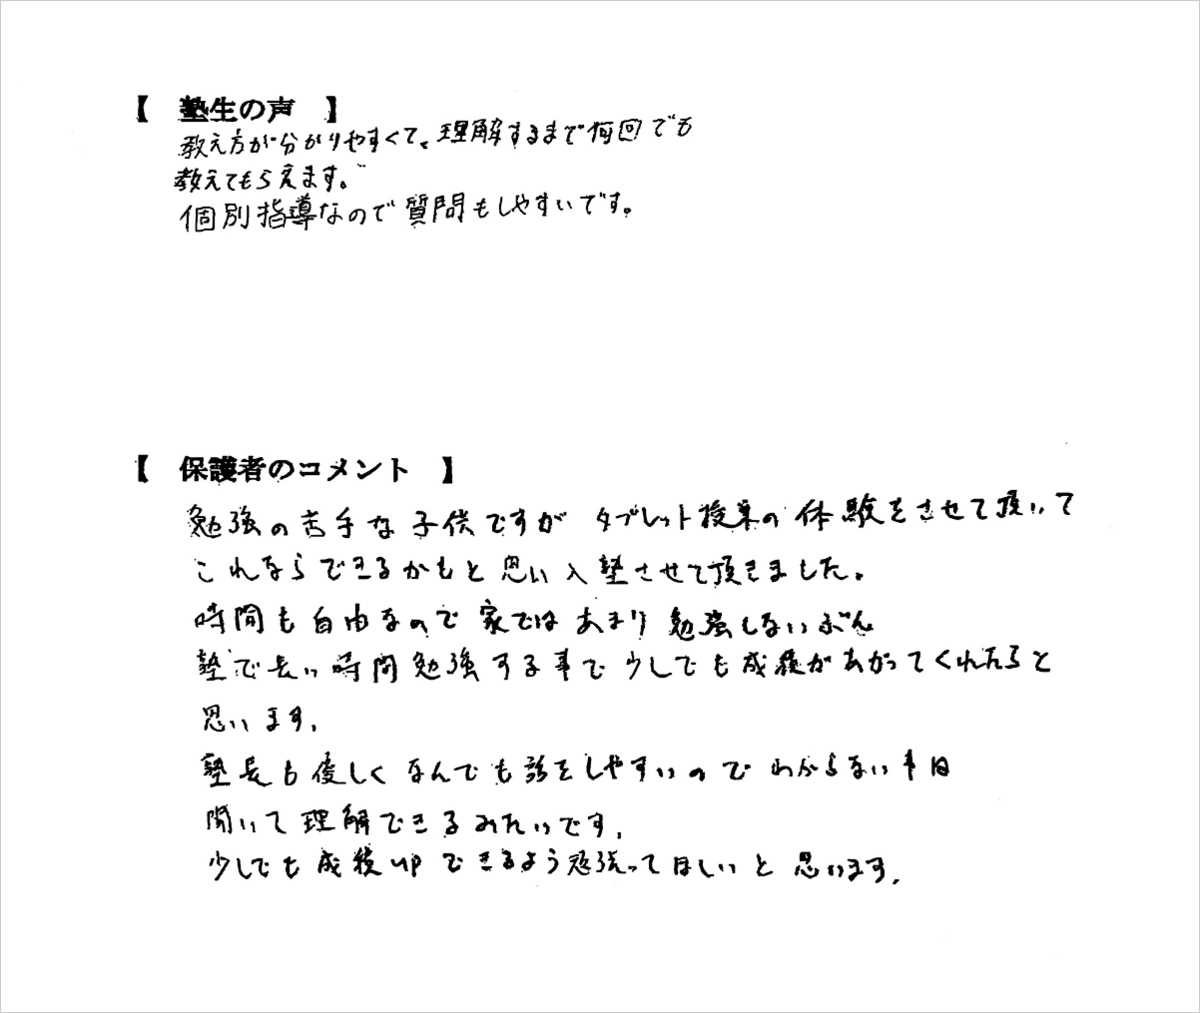 【 塾生の声 】
教え方が分かりやすくて、理解するまで何回でも
教えてもらえます。
個別指導なので質問もしやすいです。
【 保護者のコメント 】
勉強の苦手な子供ですが タブレット授業の体験をさせて頂いて
これならできるかもと思い入塾させて頂きました。
時間も自由なので家ではあまり勉強しないぶん
塾で長い時間勉強する事で少しでも成績があがってくれたらと
思います。
塾長も優しくなんでも話をしやすいのでわからない事は
聞いて理解できるみたいです。
少しでも成績upできるよう勉強ってほしいと思います。